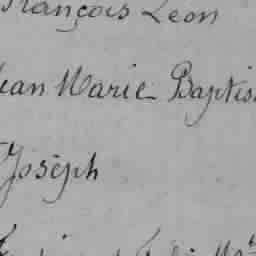 François Leon
Jean Marie Baptis
Joseph